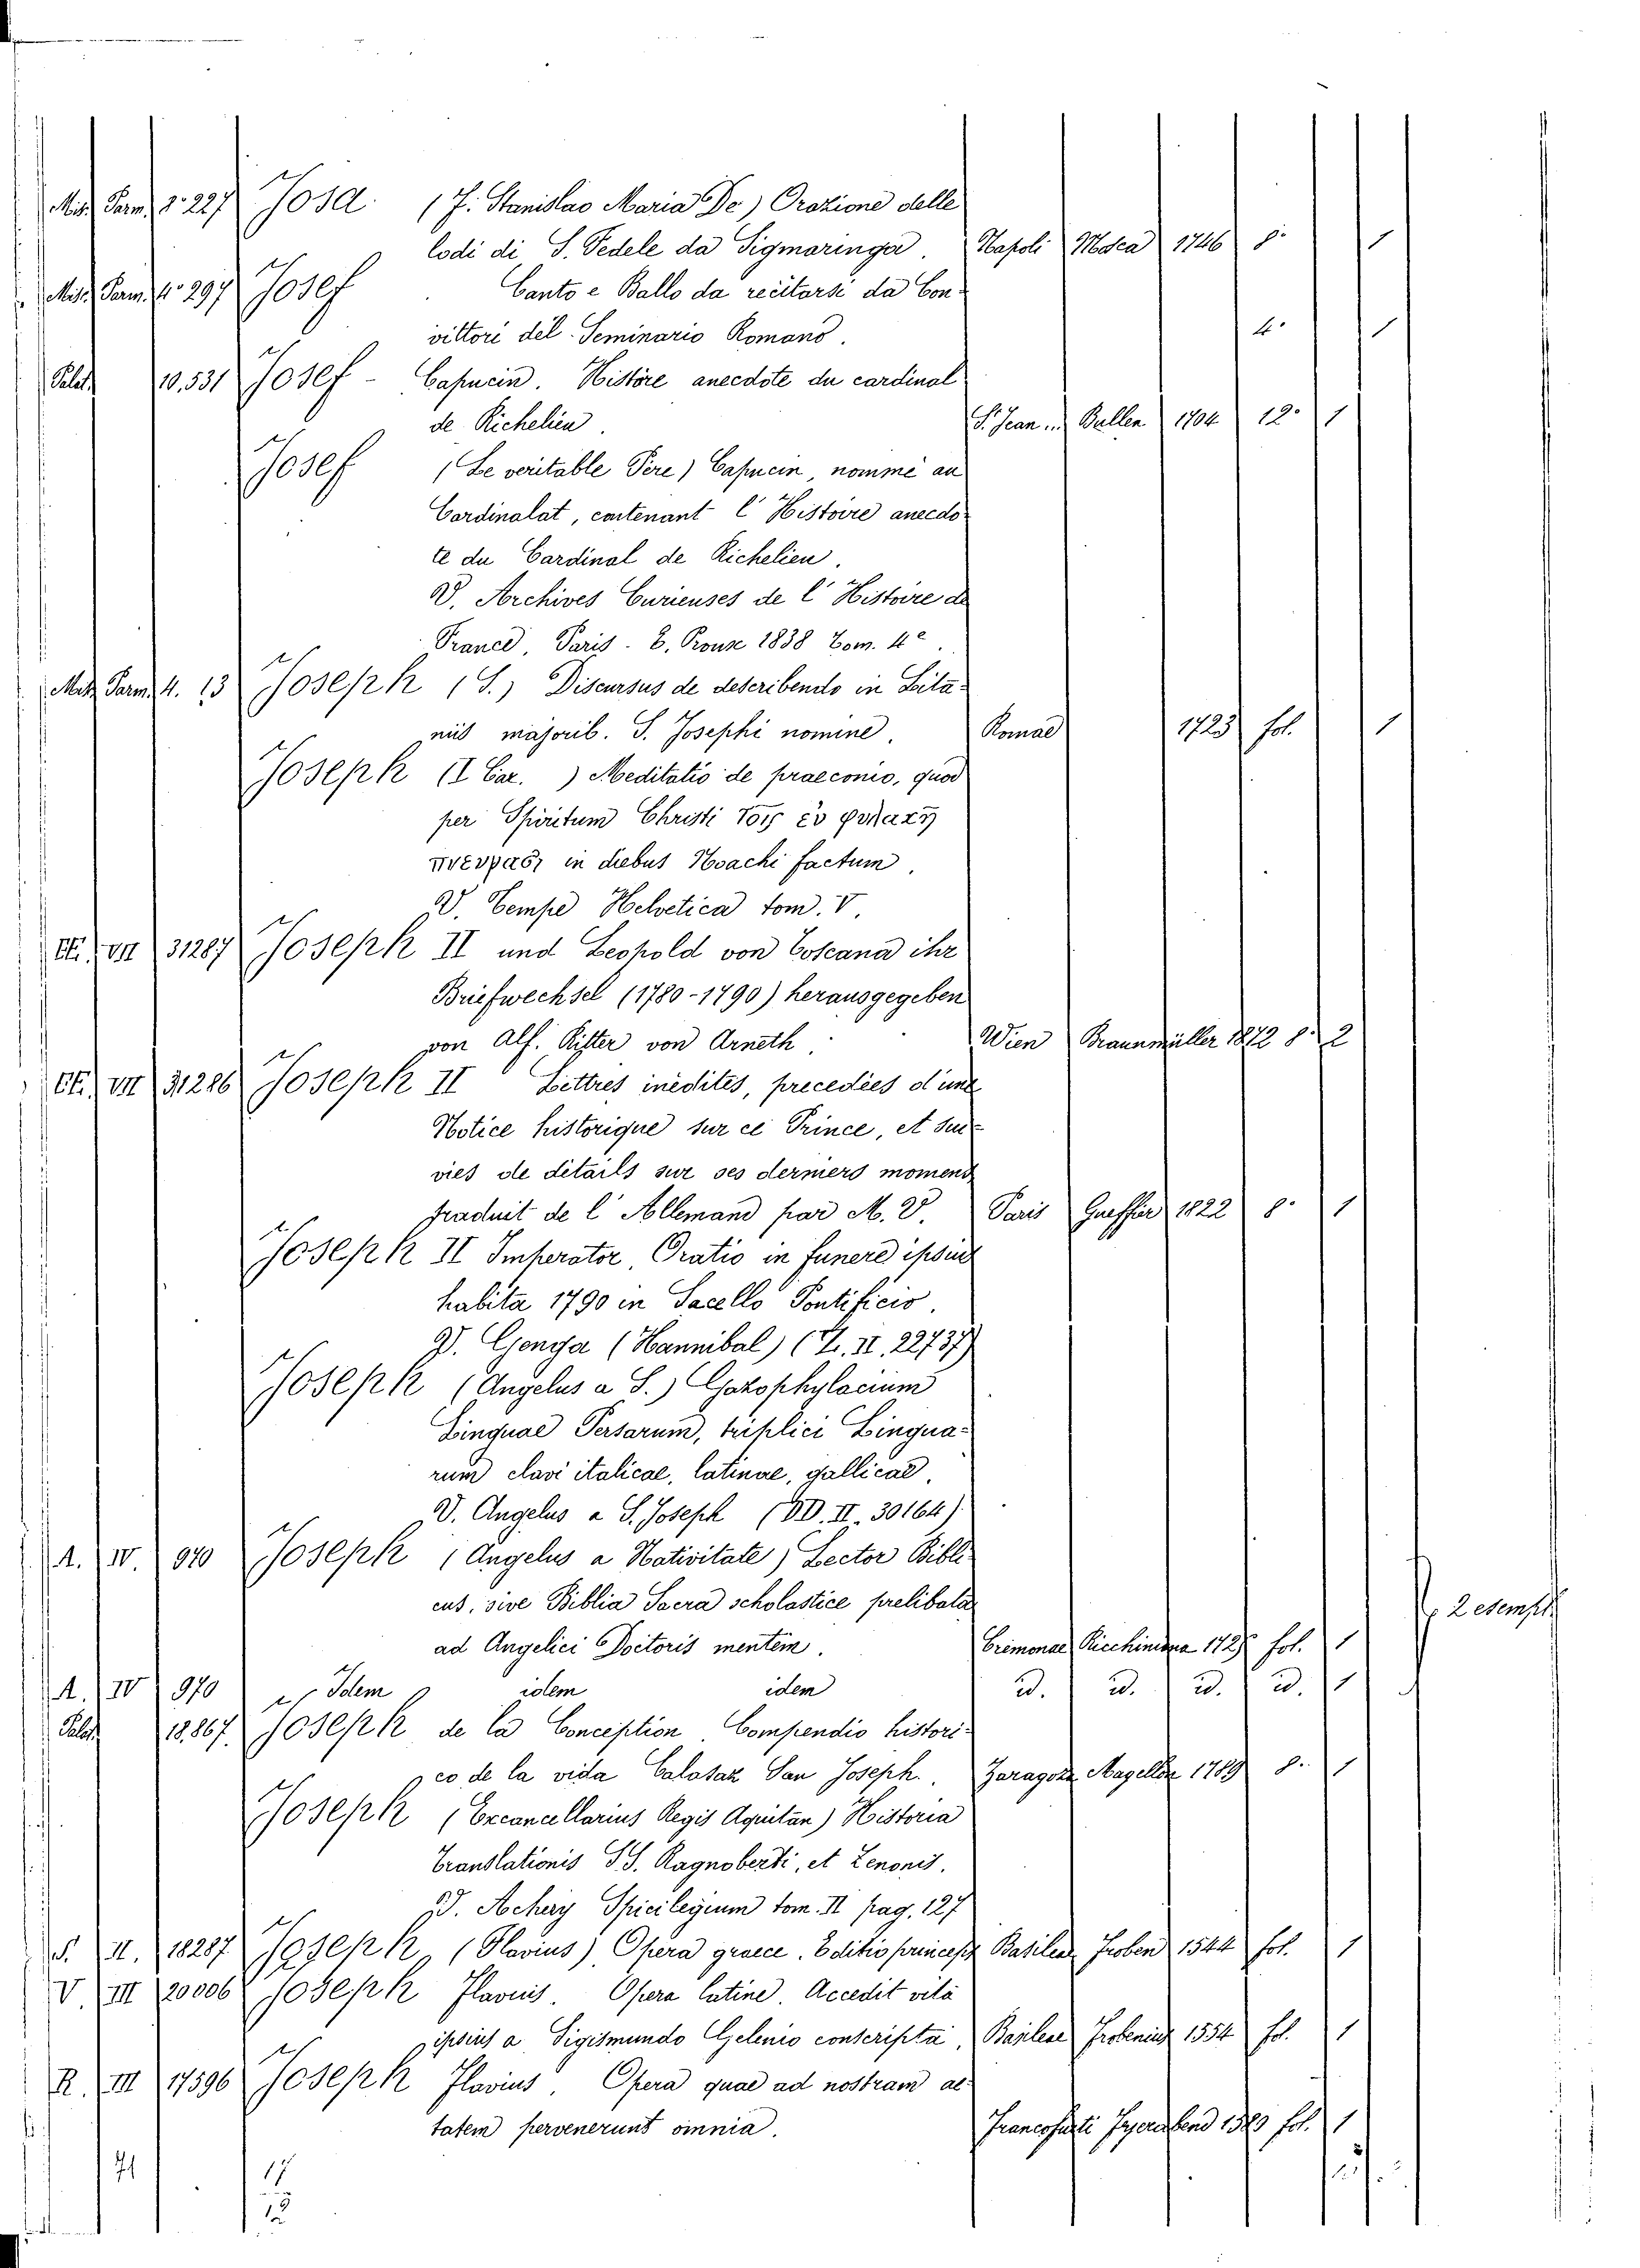 Misc. Parm. 8° 227 Josa (F. Stanislao Maria De) Orazione delle
lodi di S. Fedele da Sigmaringa. Napoli Mosca 1746 8° 1
Misc. Parm. 4° 297 Josef Canto e Ballo da recitarsi da Con-
vittori del Seminario Romano. 4° 1
Palat. 10,531 Josef - Capucin. Histore anecdote du cardinal
de Richelieu. St. Jean ... Bullen 1704 12° 1
Josef (Le veritable Père) Capucin, nommé au
Cardinalat, contenant l'Histoire anecdo-
te du Cardinal de Richelieu.
V. Archives Curieuses de l'Histoire de
France, Paris. E. Prouse 1838 Tom. 4°.
Misc. Parm. 4. 13 Joseph (S.) Discursus de describendo in Lita-
niis majorib. S. Josephi nomine. Romae 1723 fol. 1
Joseph (I Car. ) Meditatio de praeconio, quod
per Spiritum Christi τοις εν φυλακη
πνευμασι in diebus Noachi factum.
V. Tempe Helvetica tom. V.
Et. VII 31287 Joseph II und Leopold von Toscana ihr
Briefwechsel (1780-1790) herausgegeben
von Alf. Ritter von Arneth. Wien Braunmüller 1872 8° 2
Et. VII 31286 Joseph II Lettres inédites, precedées d'une
Notice historique sur ce Prince, et sui-
vies de détails sur ses derniers momens
traduit de l'Allemand par M. V. Paris Gueffier 1822 8° 1
Joseph II Imperator, Oratio in funere ipsius
habita 1790 in Sacello Pontificio.
V. Genga (Hannibal) (Z. II. 22737)
Joseph (Angelus a S.) Gazophylacium
Linguae Persarum, triplici Lingua-
rum clavi italicae, latinae, gallicae.
V. Angelus a S. Joseph (DD. II. 30164)
A. IV. 970 Joseph (Angelus a Nativitate) Lector Bibli-
cus, sive Biblia Sacra scholastice prelibata
ad Angelici Doctoris mentem. Cremonae Ricchinina fol. 1 2 esempl.
A. IV 970 Idem idem idem id. id. id. id. 1
Palat. 18,867. Joseph de la Conception. Compendio histori-
co de la vida Calasaz San Joseph. Zaragoza Magellon 1789 8. 1
Joseph (Excancellarius Regis Aquitan) Historia
Translationis S.S. Ragnoberti, et Zenonis.
V. Achery Spicilegium tom. II pag. 127
S. II. 18287 Joseph (Flavius) Opera graece. Editio princeps Basileae Froben 1544 fol. 1
V. III 20006 Joseph Flavius. Opera latine. Accedit vita
ipsius a Sigismundo Gelenio conscripta, Basileae Frobenius 1554 fol. 1
R. III 17596 Joseph Flavius. Opera quae ad nostram ae-
tatem pervenerunt omnia. Francofurti Feyerabend 1589 fol. 1
71 17